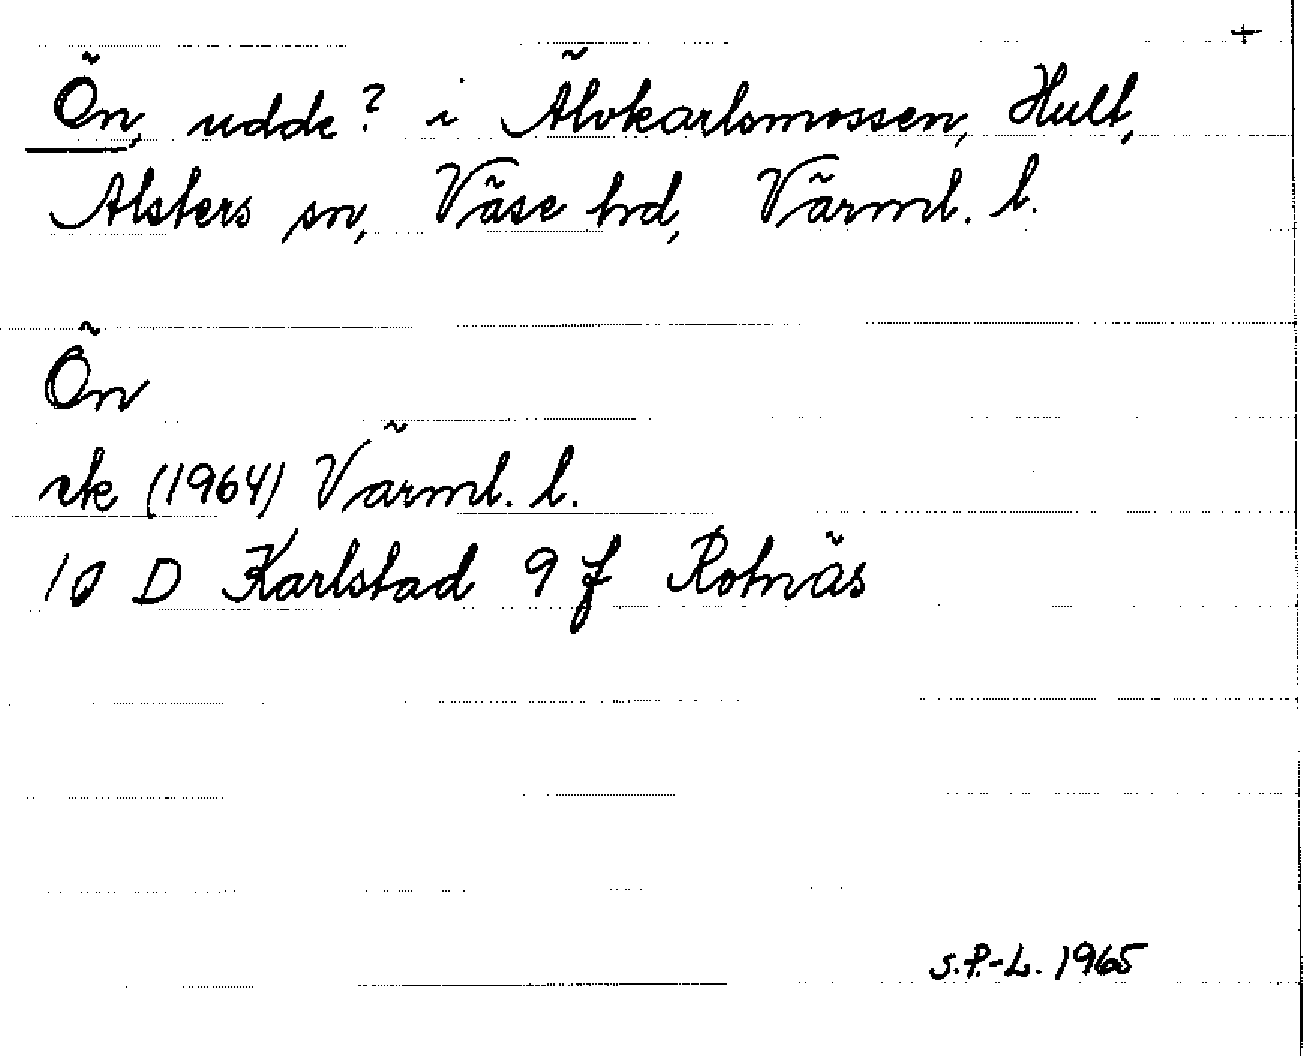 +
Ön, udde? i Älvkarlsmossen, Hult,
Alsters sn, Väse hd, Värml. l.
Ön
rk (1964) Värml. l.
10 D Karlstad 9 f Rotnäs
S.P.-L. 1965